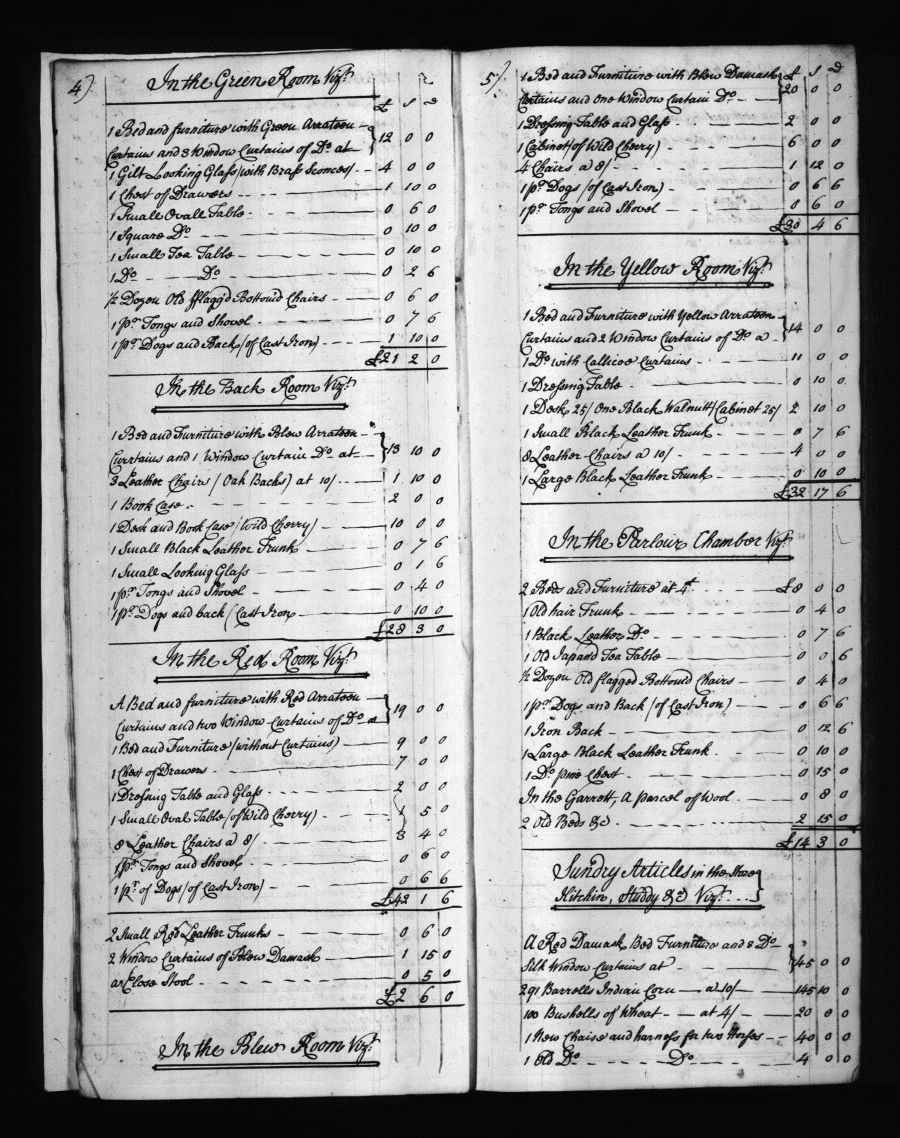 4)
In the Green Room Vizt.
£ s D
1 Bed and furniture with Green Arrateen
Curtains and 3 Window Curtains of Do at } 12 0 0
1 Gilt Looking Glass (with Brass Sconces) 4 0 0
1 Chest of Drawers 1 10 0
1 Small Ovall Table 0 6 0
1 Square Do 0 10 0
1 Small Tea Table 0 10 0
1 Do Do 0 2 6
½ Dozen Old fflagg'd Bottom'd Chairs 0 6 0
1 pr Tongs and Shovel 0 7 6
1 pr Dogs and Back (of Cast Iron) 1 10 0
£21 2 0
In the Back Room Vizt.
1 Bed and Furniture with Blew Arrateen
Curtains and 1 Window Curtain Do at } 13 10 0
3 Leather Chairs (Oak Backs) at 10/ 1 10 0
1 Book Case 2 0 0
1 Desk and Book Case (Wild Cherry) 10 0 0
1 Small Black Leather Trunk 0 7 6
1 Small Looking Glass 0 1 6
1 pr Tongs and Shovel 0 4 0
1 pr Dogs and back (Cast Iron 0 10 0
£28 3 0
In the Red Room Vizt.
A Bed and furniture with Red Arrateen
Curtains and two Window Curtains of Do a } 19 0 0
1 Bed and Furniture (without Curtains) 9 0 0
1 Chest of Drawers 7 0 0
1 Dressing Table and Glass 2 0 0
1 Small Oval Table (of Wild Cherry) 1 5 0
8 Leather Chairs a 8/ 3 4 0
1 pr Tongs and Shovel 0 6 0
1 pr of Dogs (of Cast Iron) 0 6 6
£42 1 6
2 Small Red Leather Trunks 0 6 0
2 Window Curtains of Blew Damask 1 15 0
a Close Stool 0 5 0
£2 6 0
In the Blew Room Vizt.
5)
£ s D
1 Bed and Furniture with Blew Damask
Curtains and One Window Curtain Do } 20 0 0
1 Dressing Table and Glass 2 0 0
1 Cabinet (of Wild Cherry) 6 0 0
4 Chairs a 8/ 1 12 0
1 pr Dogs (of Cast Iron) 0 6 6
1 pr Tongs and Shovel 0 6 0
£30 4 6
In the Yellow Room Vizt.
1 Bed and Furniture with Yellow Arrateen
Curtains and 2 Window Curtains of Do a } 14 0 0
1 Do with Callicoe Curtains 11 0 0
1 Dressing Table 0 10 0
1 Desk 25/ One Black Walnutt Cabinet 25/ 2 10 0
1 Small Black Leather Trunk 0 7 6
8 Leather Chairs a 10/ 4 0 0
1 Large Black Leather Trunk 0 10 0
£32 17 6
In the Parlour Chamber Vizt.
2 Beds and Furniture at 4£ £8 0 0
1 Old hair Trunk 0 4 0
1 Black Leather Do 0 7 6
1 Old Japand Tea Table 0 0 6
½ Dozen Old flagged Bottom'd Chairs 0 4 0
1 pr Dogs and Back (of Cast Iron) 0 6 6
1 Iron Back 0 12 6
1 Large Black Leather Trunk 0 10 0
1 Do pine Chest 0 15 0
In the Garrett, A parcel of Wool 0 8 0
2 Old Beds &c 2 15 0
£14 3 0
Sundry Articles in the Store
Kitchin, Studdy &c Vizt.
A Red Damask Bed Furniture and 8 Do
Silk Window Curtains at } 45 0 0
291 Barrells Indian Corn a 10/ 145 10 0
100 Bushells of Wheat at 4/ 20 0 0
1 New Chaise and harness for two Horses 40 0 0
1 Old Do Do 4 0 0